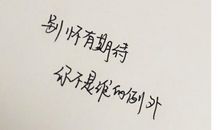 别怀有期待
你不是谁的例外